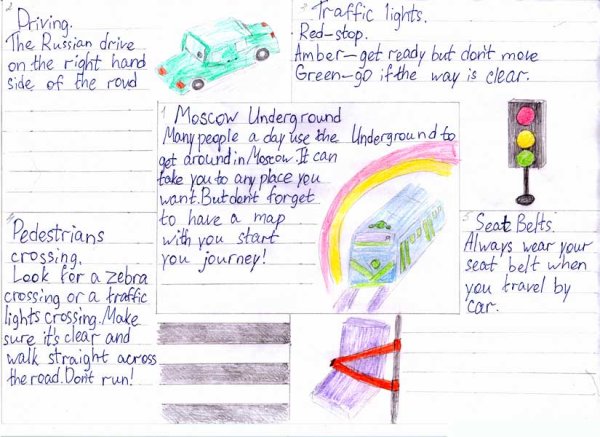 2 Driving.
The Russian drive
on the right hand
side of the roud
3 Traffic lights.
Red-stop.
Amber-get ready but don't move
Green-go if the way is clear.
1 Moscow Underground
Many people a day use the Underground to
get around in Moscow. It can
take you to any place you
want. But don't forget
to have a map
with you start
you journey!
4
Pedestrians
crossing.
Look for a zebra
crossing or a traffic
lights crossing. Make
sure it's clear and
walk straight across
the road. Don't run!
5 Seat Belts.
Always wear your
seat belt when
you travel by
car.